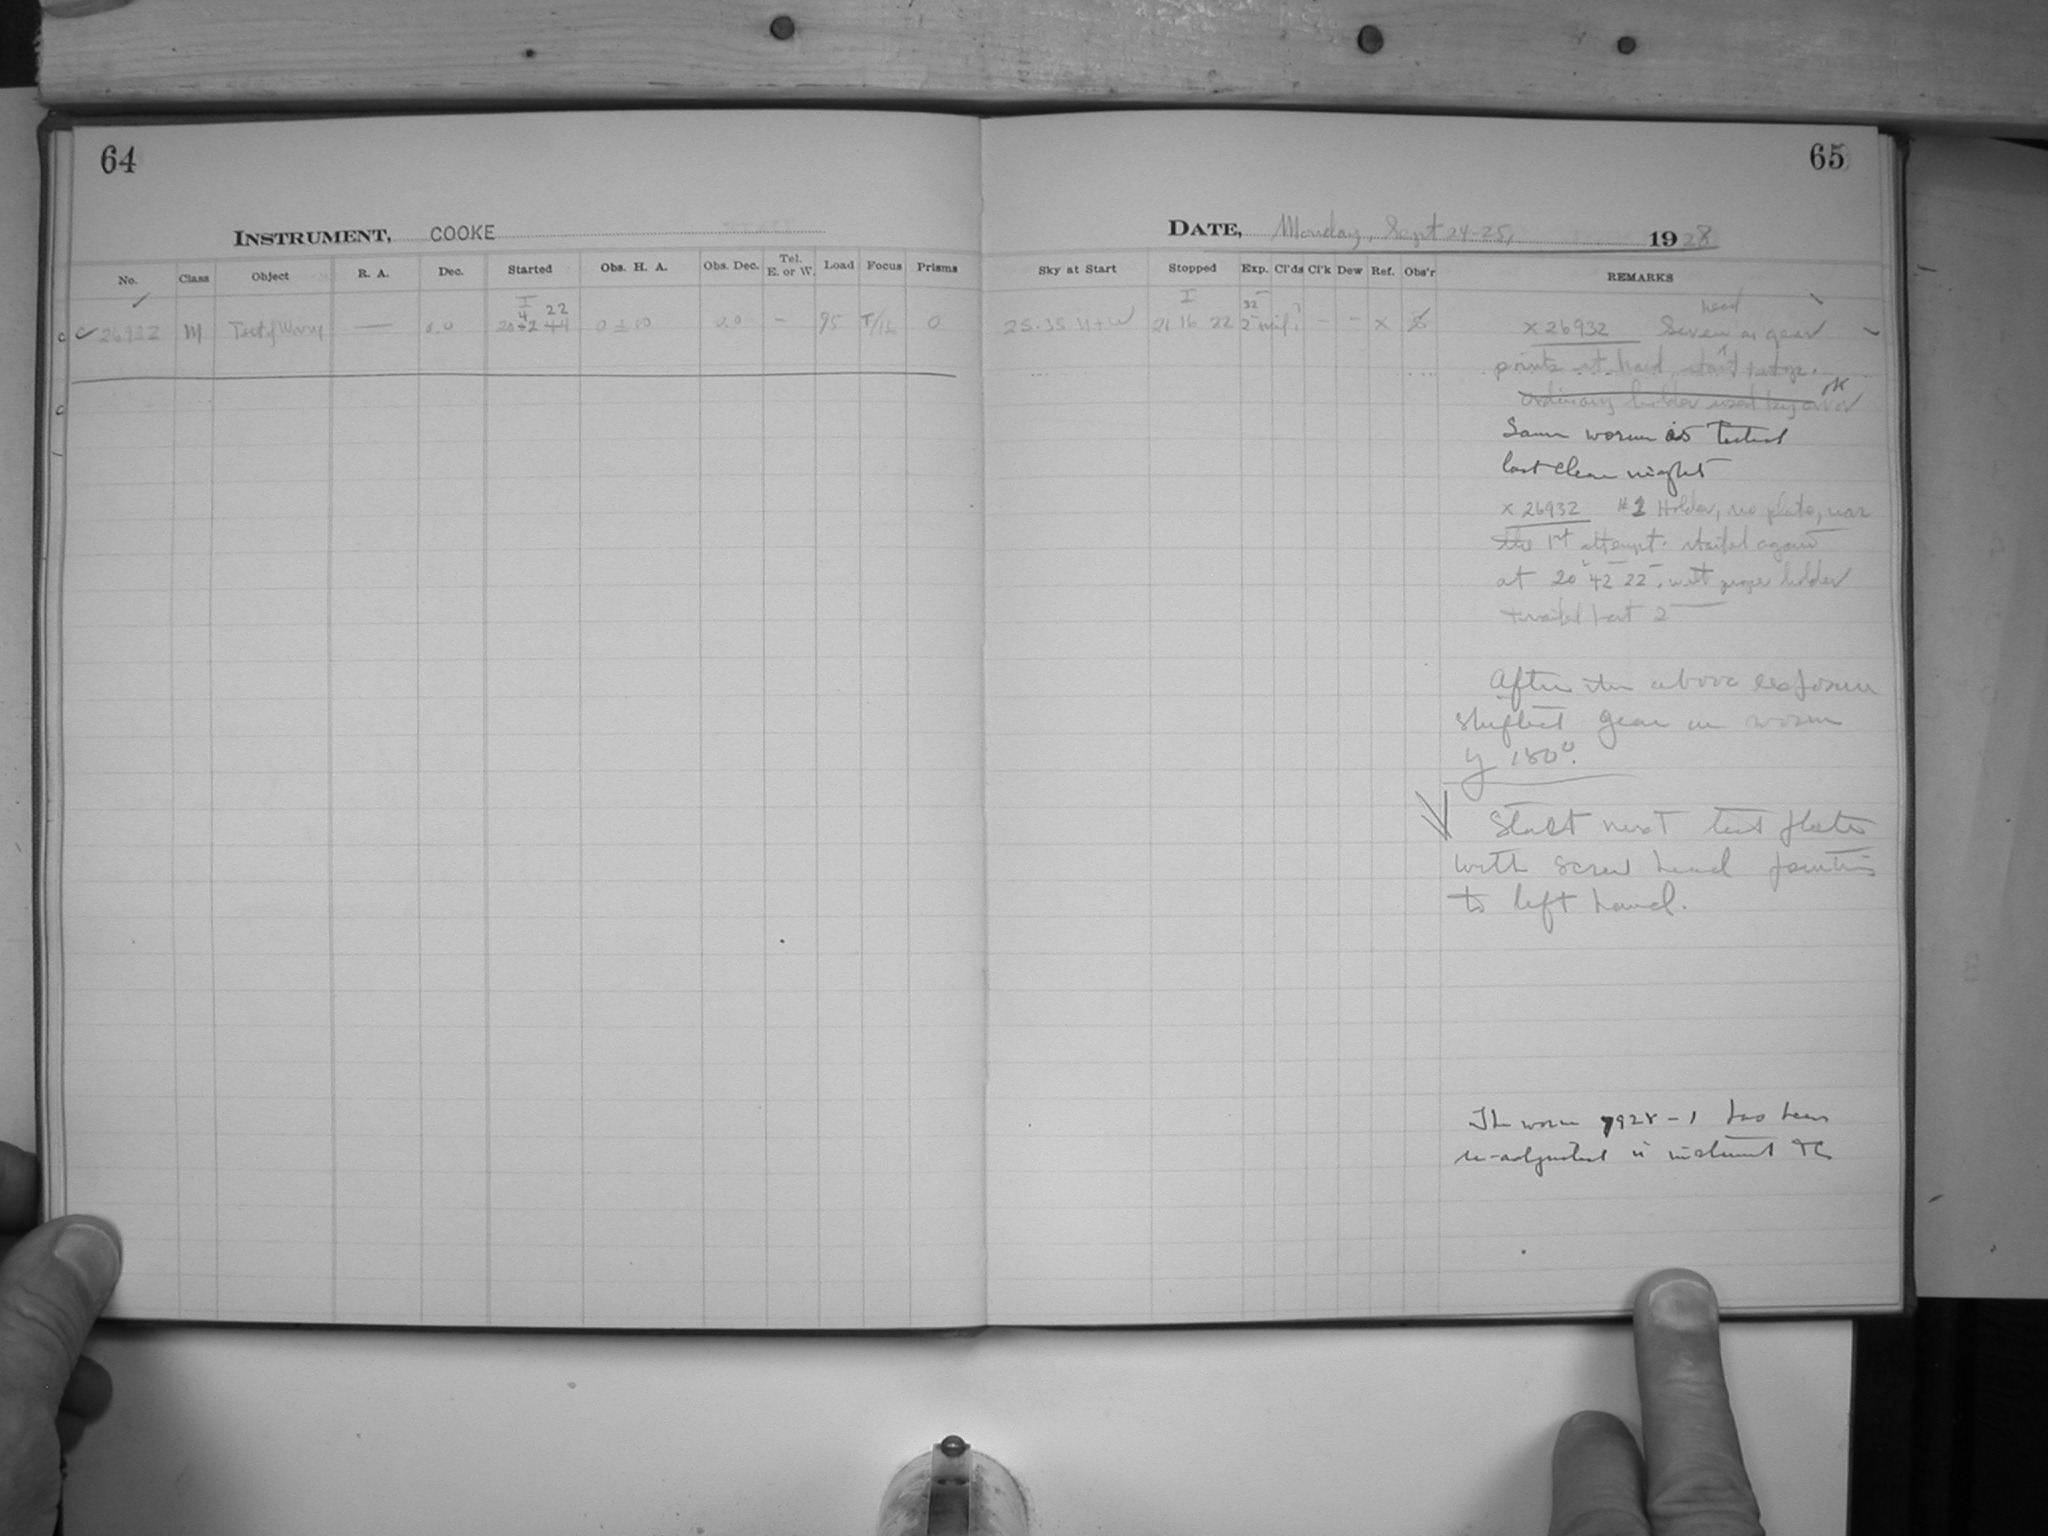 64
INSTRUMENT, COOKE
No. Class Object R. A. Dec. Started Obs. H. A. Obs. Dec. Tel. E. or W. Load Focus Prisms
I
4 22
c 26932 M Test of Worm — 0.0 20 42 44 0 ± 10 0.0 – 95 0
c
65
DATE, Monday, Sept 24-25, 1928
Sky at Start Stopped Exp. Cl'ds Cl'k Dew Ref. Obs'r REMARKS
I 32 head
21 16 22 – – x x 26932 Screw on gear
points at hand, start & stop.
ordinary holder used by error OK
Same worm as tested
last clear night
x 26932 Holder, no plate, was
the 1st attempt. started again
at 20 42 22, with proper holder
After the above exposure
shifted gear on worm
y 180°.
Start next test plate
with screw head pointing
to left hand.
The worm 1928-1 has been
re-adjusted in instrument